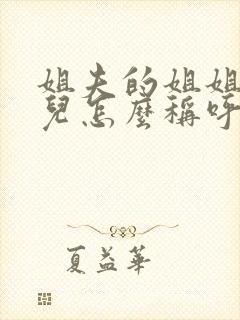 姐夫的姐姐
兒怎麼稱呼
夏益華